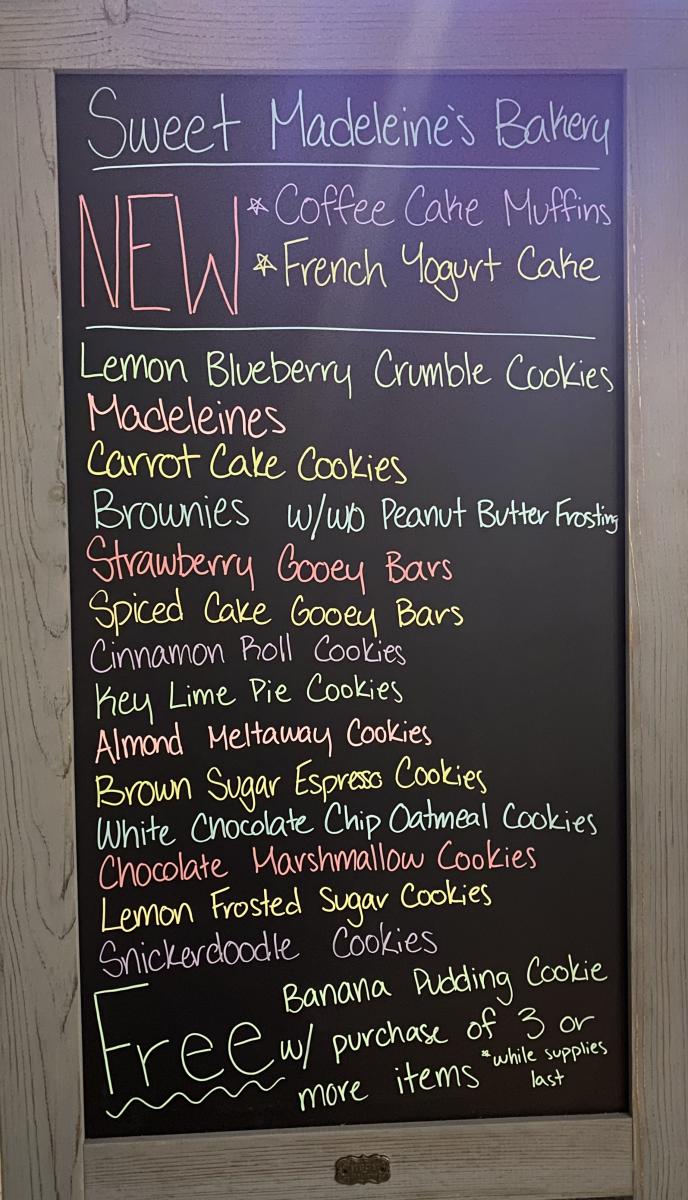 Sweet Madeleine's Bakery
NEW
* Coffee Cake Muffins
* French Yogurt Cake
Lemon Blueberry Crumble Cookies
Madeleines
Carrot Cake Cookies
Brownies w/wo Peanut Butter Frosting
Strawberry Gooey Bars
Spiced Cake Gooey Bars
Cinnamon Roll Cookies
Key Lime Pie Cookies
Almond Meltaway Cookies
Brown Sugar Espresso Cookies
White Chocolate Chip Oatmeal Cookies
Chocolate Marshmallow Cookies
Lemon Frosted Sugar Cookies
Snickerdoodle Cookies
Free
Banana Pudding Cookie
w/ purchase of 3 or
more items
*while supplies
last